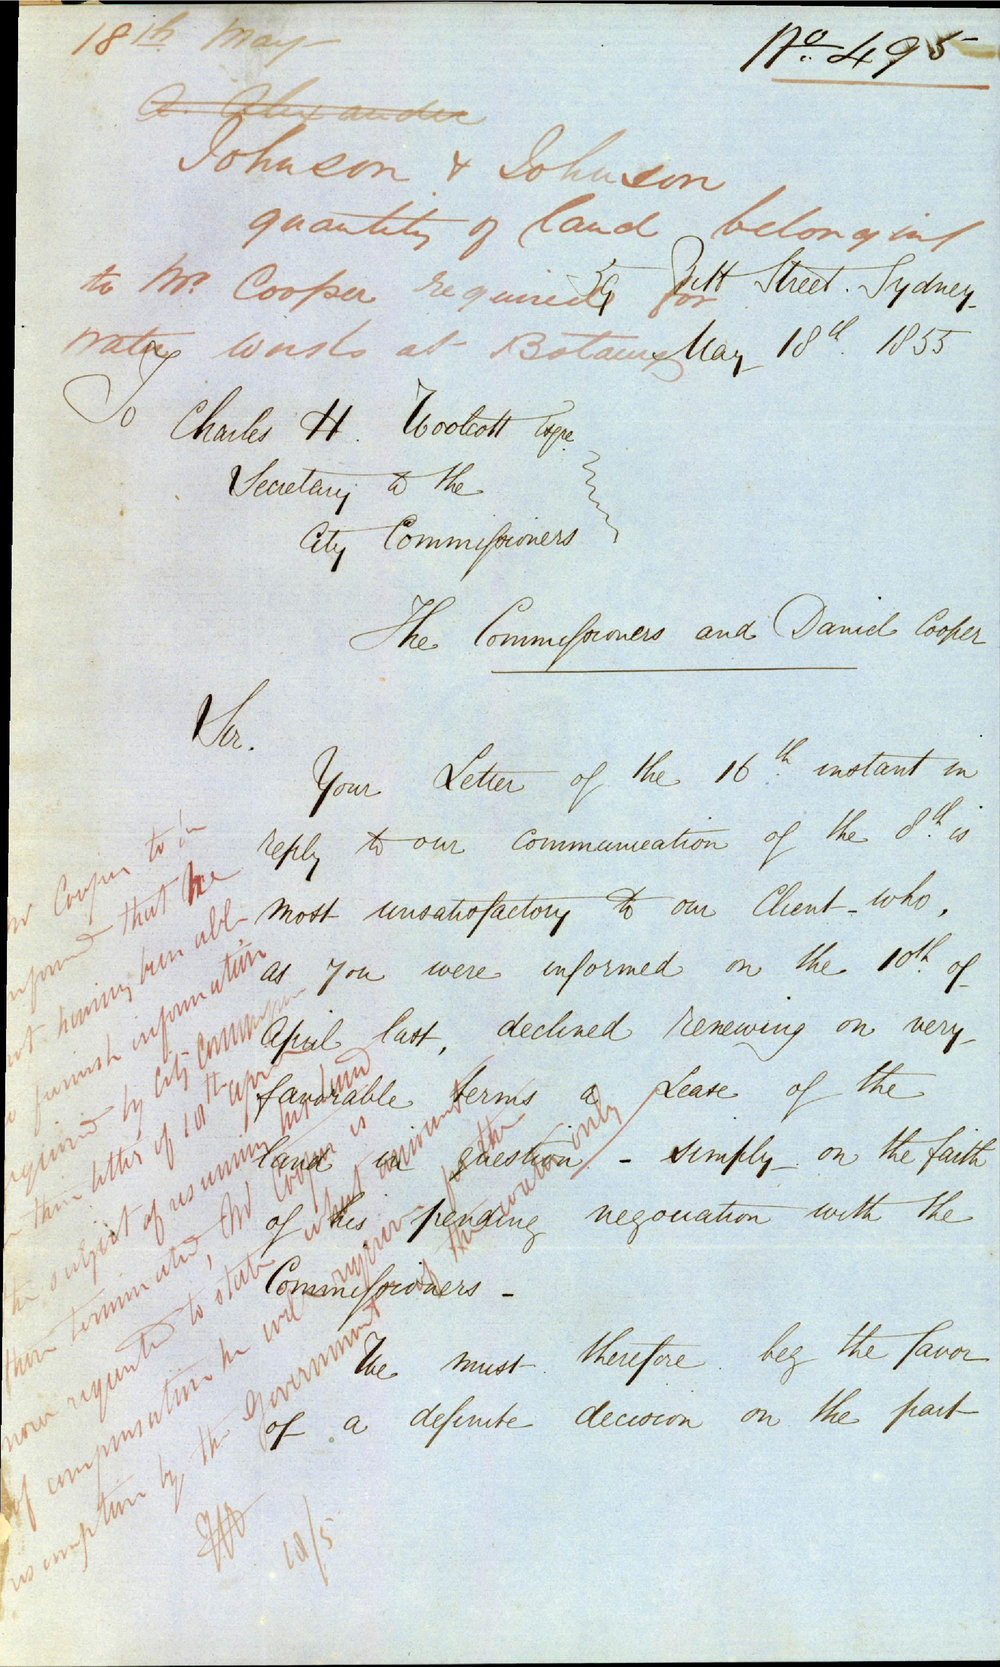 18th May
No. 495
A. Alexander
Johnson & Johnson
quantity of land belonging
to Mr. Cooper required for
water works at Botany
59 Pitt Street. Sydney
May 18th. 1855
To
Charles H. Woolcott Esqre
Secretary to the
City Commissioners
The Commissioners and Daniel Cooper
Sir.
Your Letter of the 16th. instant in
reply to our communication of the 8th. is
most unsatisfactory to our Client - who,
as you were informed on the 10th. of
April last, declined renewing on very
favorable terms a Lease of the
land in question - simply on the faith
of his pending negociation with the
Commissioners -
We must therefore beg the favor
of a definite decision on the part
Mr Cooper to be
informed that he
not having been able
to furnish information
required by City Commrs
in their letter of 10th April
the subject of resuming his land
there terminated, Mr Cooper is
now requested to state what amount
of compensation he will require for the
resumption by the Government of the reservation only